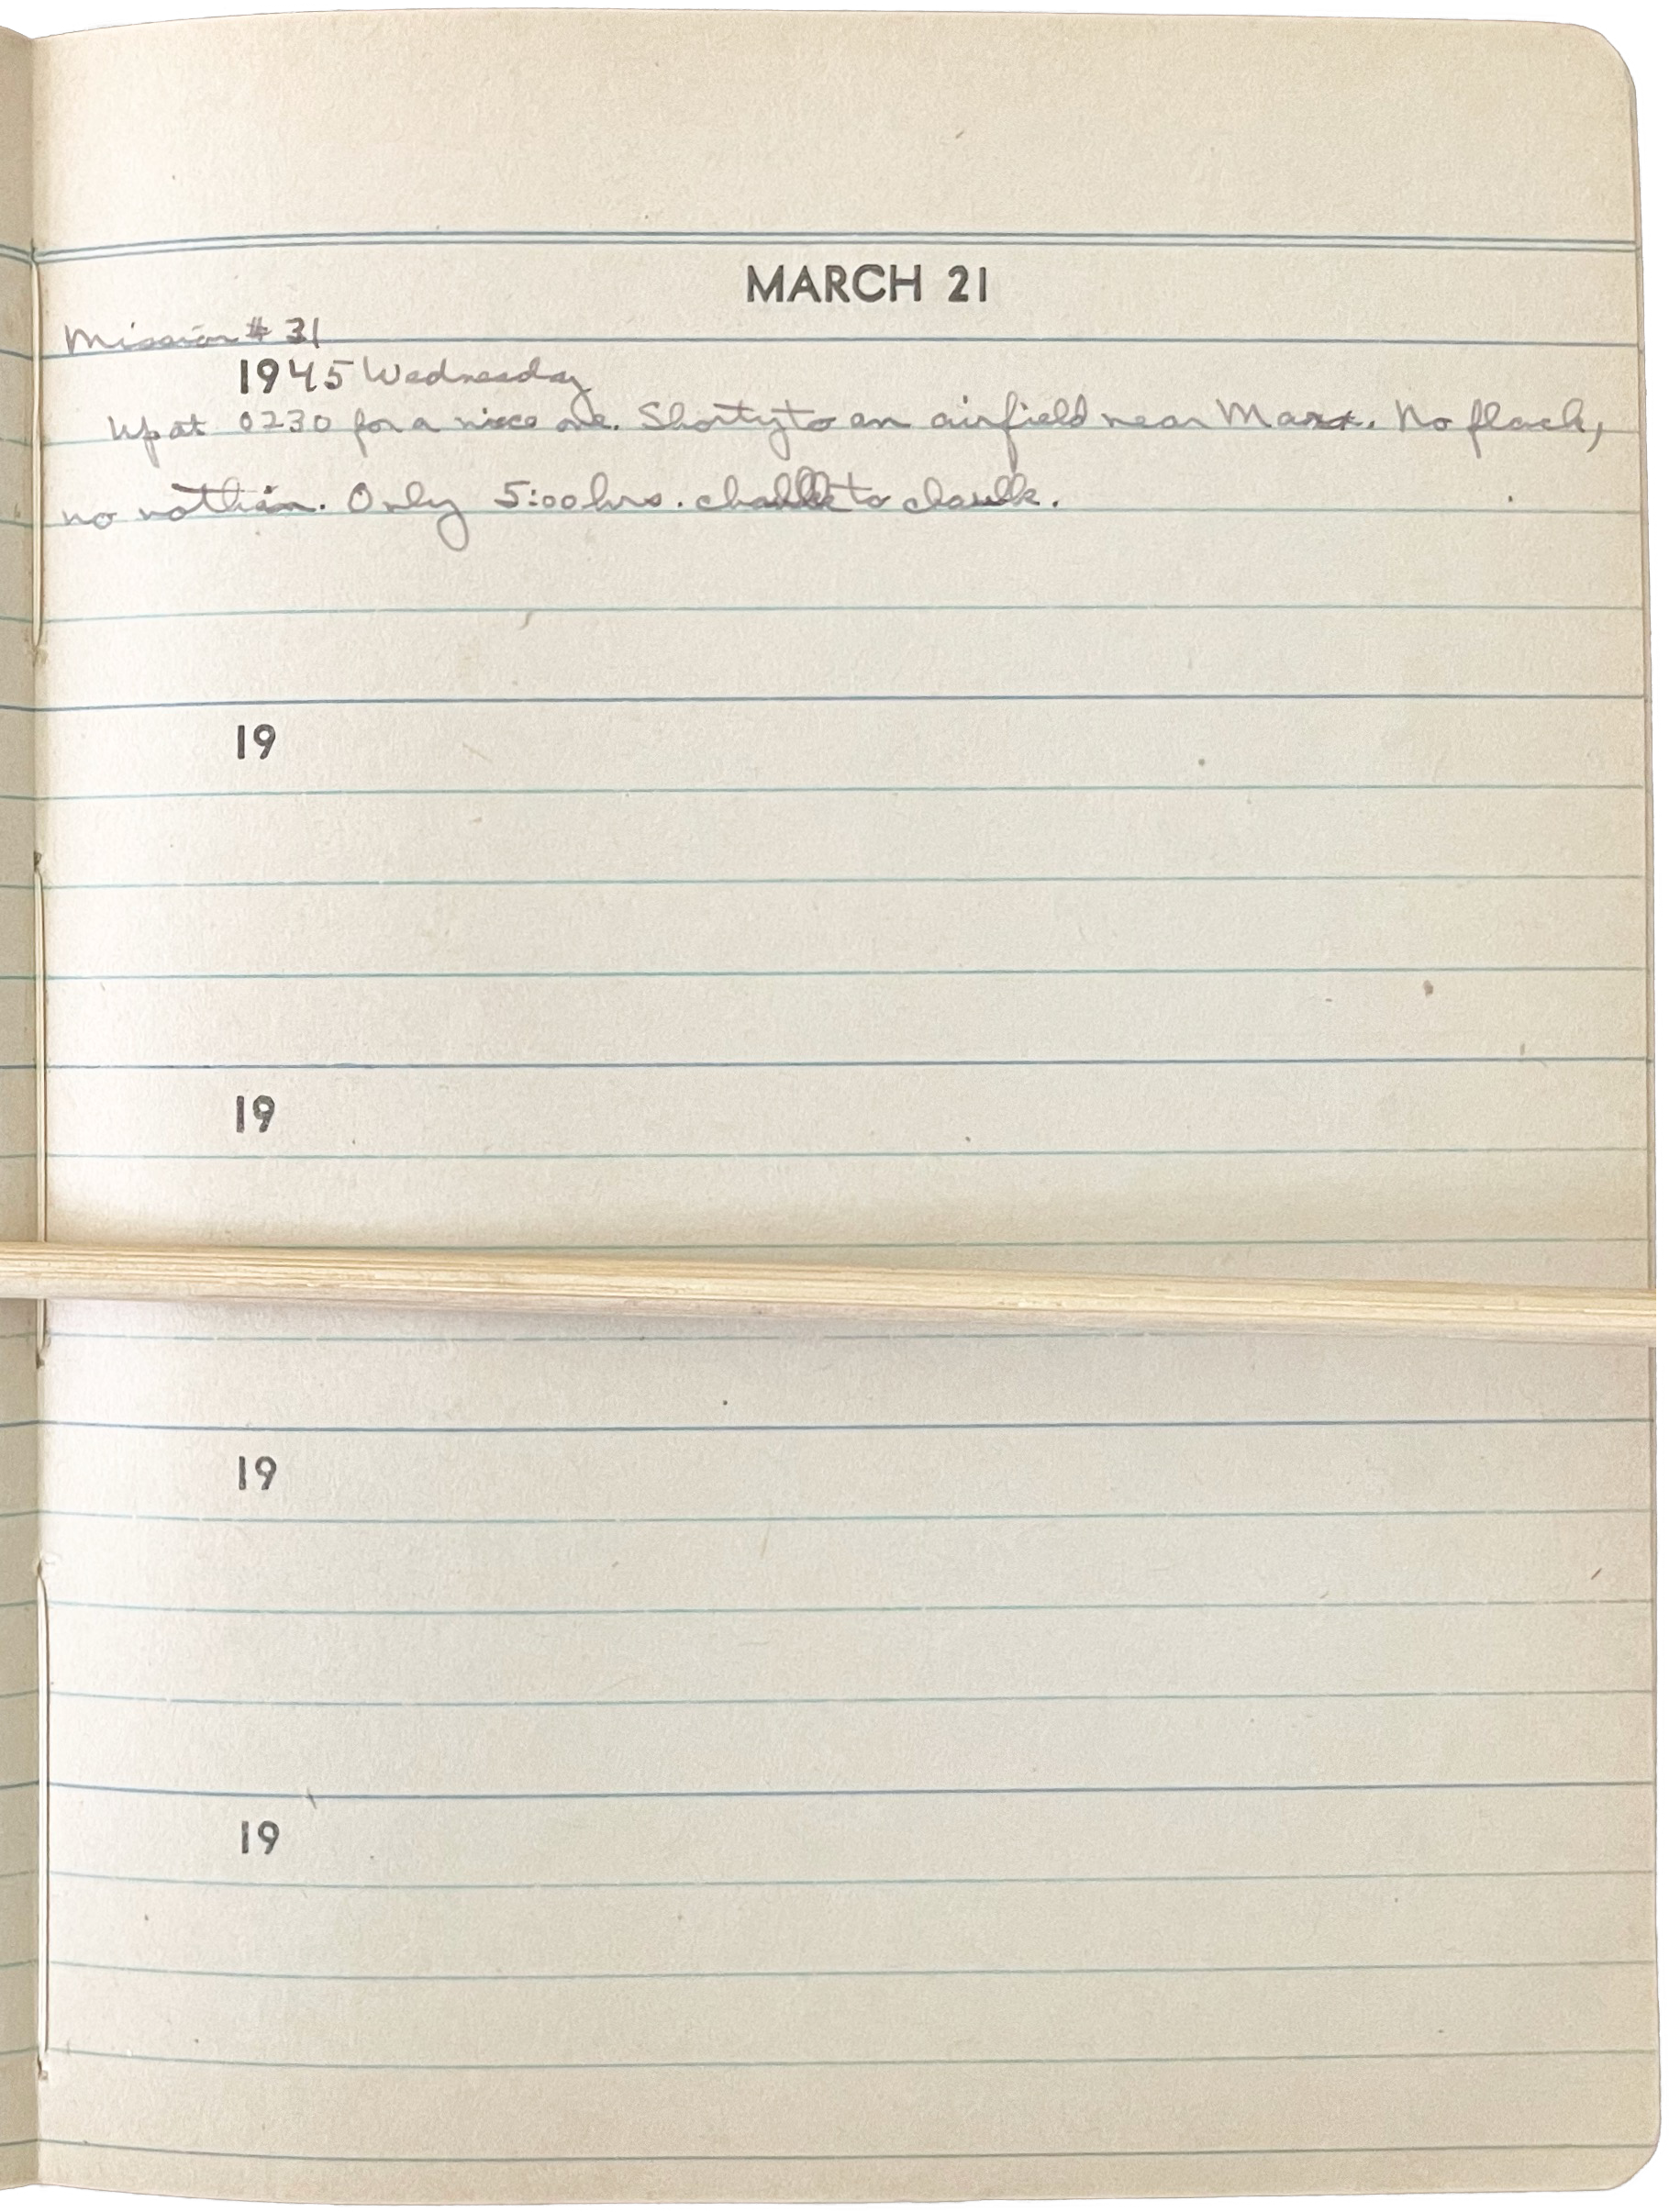 MARCH 21
Mission # 31
1945 Wednesday
Up at 0230 for a nice one. Shorty to an airfield near Marx. No flack,
no nothin. Only 5:00 hrs. chalk to chalk.
19
19
19
19